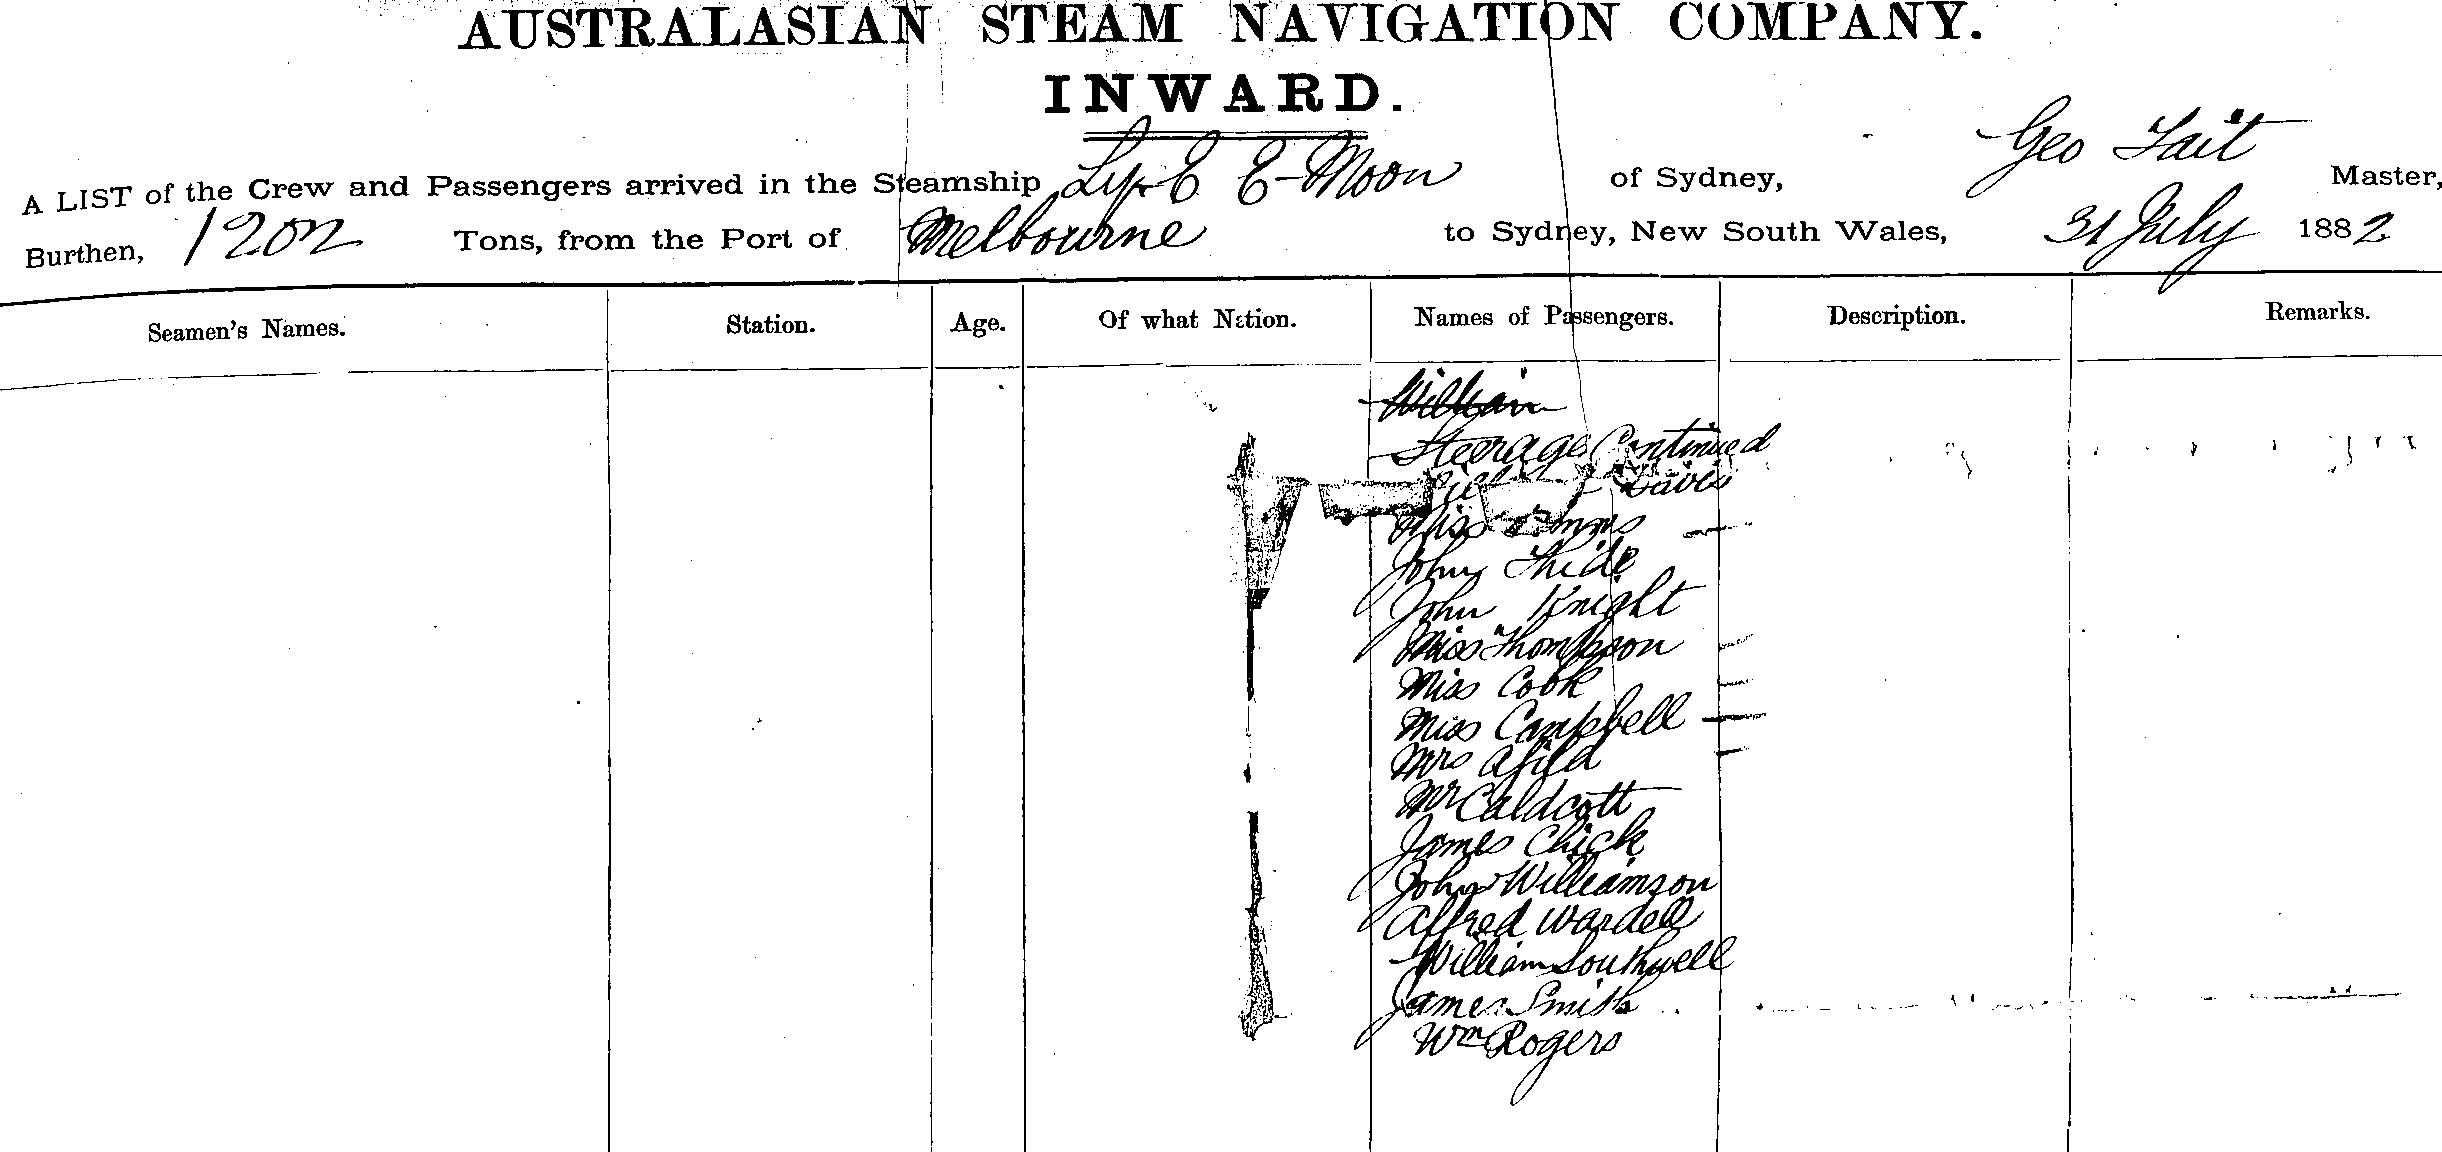 AUSTRALASIAN STEAM NAVIGATION COMPANY.
INWARD.
A LIST of the Crew and Passengers arrived in the Steamship Ly-E E-Moon of Sydney, Geo Tait Master,
Burthen, 1202 Tons, from the Port of Melbourne to Sydney, New South Wales, 31 July 1882
Seamen's Names. Station. Age. Of what Nation. Names of Passengers. Description. Remarks.
William
Steerage Continued
Davis
Miss
John Thide
John Knight
Miss Thompson
Miss Cook
Miss Campbell
Mrs Afild
Mr Caldcott
James Chick
John Williamson
Alfred Wardell
William Southwell
James Smith
Wm Rogers